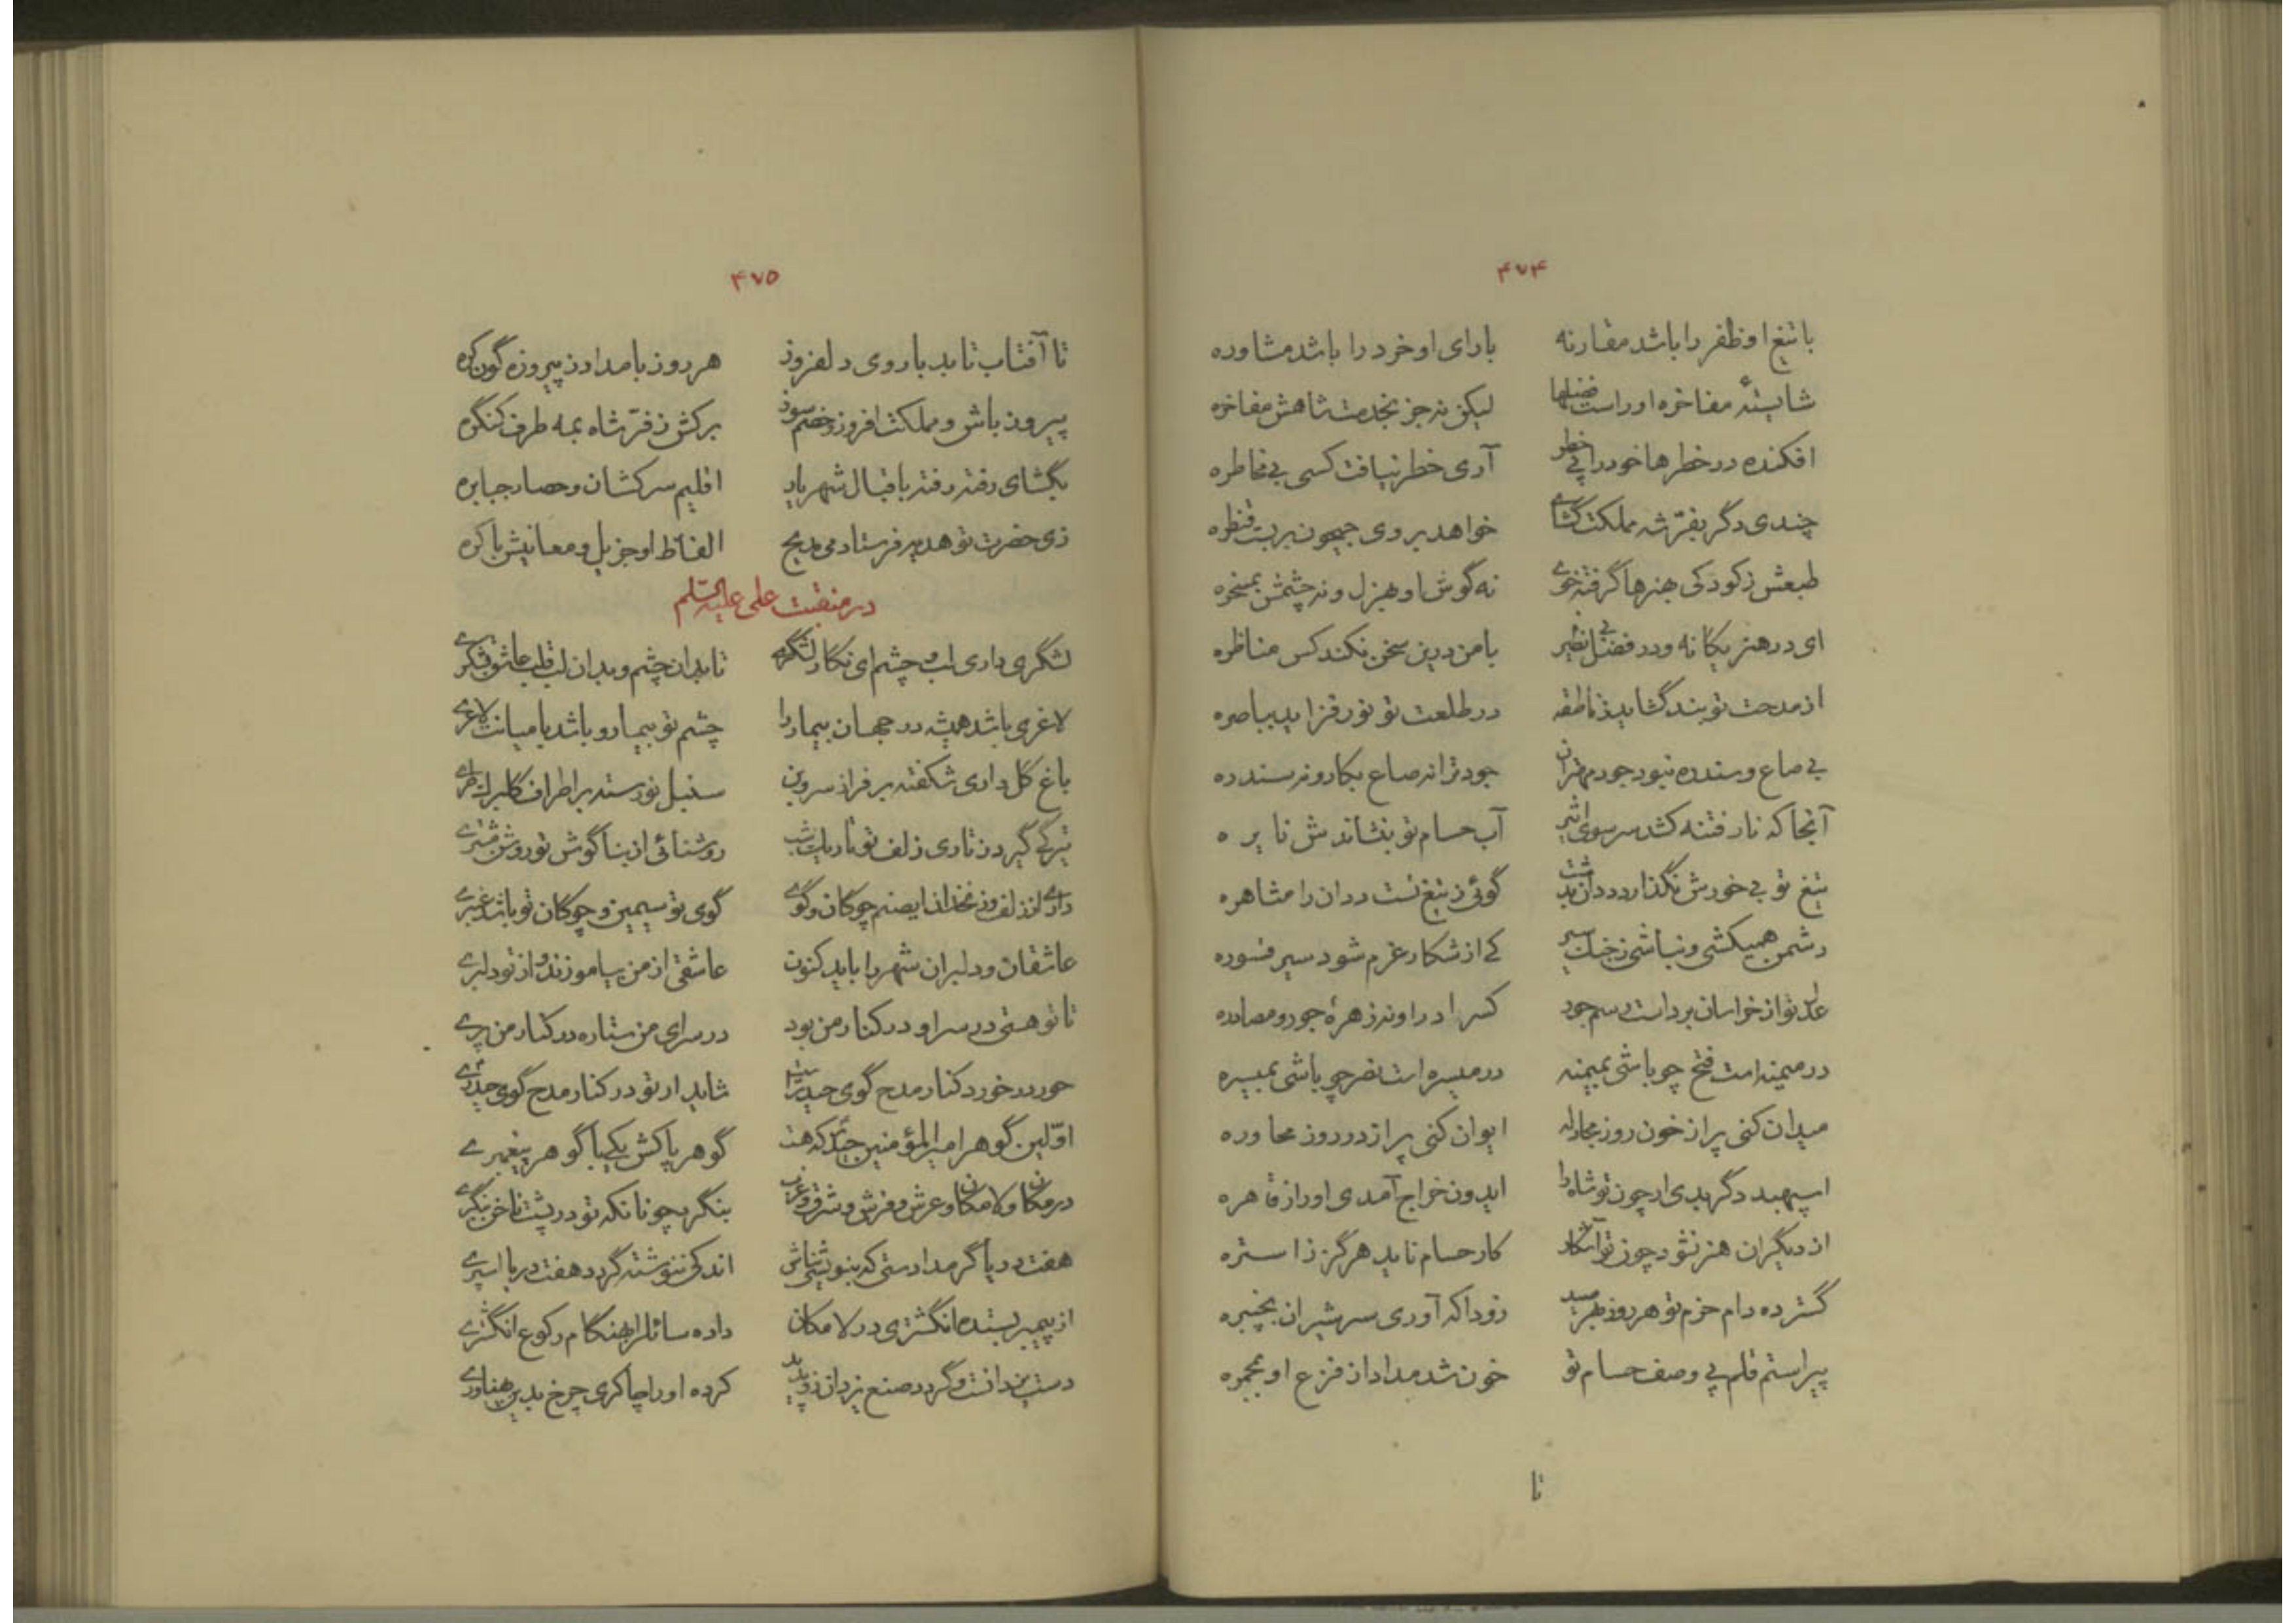 ۴۷۴
با تیغ او ظفر را باشد مقارنه بارای او خرد را باشد مشاوره
شایستهٔ مفاخره او راست فضلها لیکن نه جز بخدمت شاهش مفاخره
افکنده در خطرها خود را پی خطر آری خطر نیافت کسی بی مخاطره
چندی دگر بفرّ شه مملکت گشای خواهد بروی جیحون بربست قنطره
طبعش ز کودکی هنرها گرفته خوی نه گوش او بهزل و نه چشمش بمسخره
ای در هنر یگانه و در فضل بی نظیر با من درین سخن نکند کس مناظره
از مدحت تو بند گشاید ز ناطقه در طلعت تو نور فزاید بباصره
بی صاع و سندره نبود جود مهتران جود ترا نه صاع بکار و نه سندره
آنجا که نار فتنه کشد سر سوی اثیر آب حسام تو بنشاندش نایره
تیغ تو بی خورش نگذارد ددان بدشت گوئی ز تیغ تست ددان را مشاهره
دشمن همیکشی و نباشی ز جنگ سیر کی از شکار غرم شود سیر قسوره
عدل تو از خراسان برداشت رسم جود کس را در او نه زهرهٔ جور و مصادره
در میمنه است فتح چو باشی بمیمنه در میسره است نصر چو باشی بمیسره
میدان کنی پر از خون روز مجادله ایوان کنی پر از در روز محاوره
اسپهبد دگر بدی ار چون تو شاه را ایدون خراج آمدی او را ز قاهره
از دیگران هنر نشود چون تو آشکار کار حسام ناید هرگز ز استره
گسترده دام حزم تو هر روز بهر صید زودا که آوری سر شیران بچنبره
پیراستم قلم پی وصف حسام تو خون شد مداد از فزع او بمحبره
تا
۴۷۵
تا آفتاب تابد با روی دلفروز هر روز بامداد ز پیروزه گون کره
پیروز باش و مملکت افروز و خصم سوز برکش ز فرّ شاه بمه طرف کنگره
بگشای رفته رفته باقبال شهریار اقلیم سرکشان و حصار جبابره
زی حضرت تو هدیه فرستادمی مدیح الفاظ او جزیل و معانیش باکره
در منقبت علی علیه السلم
لشگری داری لب و چشم ای نگار لشگری تا بدان چشم و بدان لب قلب عاشق بشکری
لاغری باشد همیشه در جهان بیمار را چشم تو بیمار و باشد با میانت لاغری
باغ گل داری شکفته بر فراز سروبن سنبل نورسته بر اطراف گلبرگ طری
تیرگی گیرد ز تاری زلف تو تاریک شب روشنائی از بناگوش تو روشن مشتری
داری از زلف و ز نخدان ای صنم چوگان و گوی گوی تو سیمین و چوگان تو باشد عنبری
عاشقان و دلبران شهر را باید کنون عاشقی از من بیاموزند و از تو دلبری
تا تو هستی در سرا و در کنار من بود در سرای من ستاره در کنار من پری
حور در خورد کنار مدح گوی حیدر است شاید ار تو در کنار مدح گوی حیدری
اوّلین گوهر امیر المؤمنین حیدر که هست گوهر پاکش یکی با گوهر پیغمبری
در مکان و لا مکان و عرش و فرش و شرق و غرب بنگرد چونانکه تو در پشت ناخن بنگری
هفت دریا گر مدادستی که بنویسی ثناش اندکی ننوشته گردد هفت دریا اسپری
از پیمبر بستده انگشتری در لا مکان داده سائل را بهنگام رکوع انگشتری
دست یزدانست و گردد صنع یزدان زو پدید کرده او را چاکری چرخ بدین پهناوری